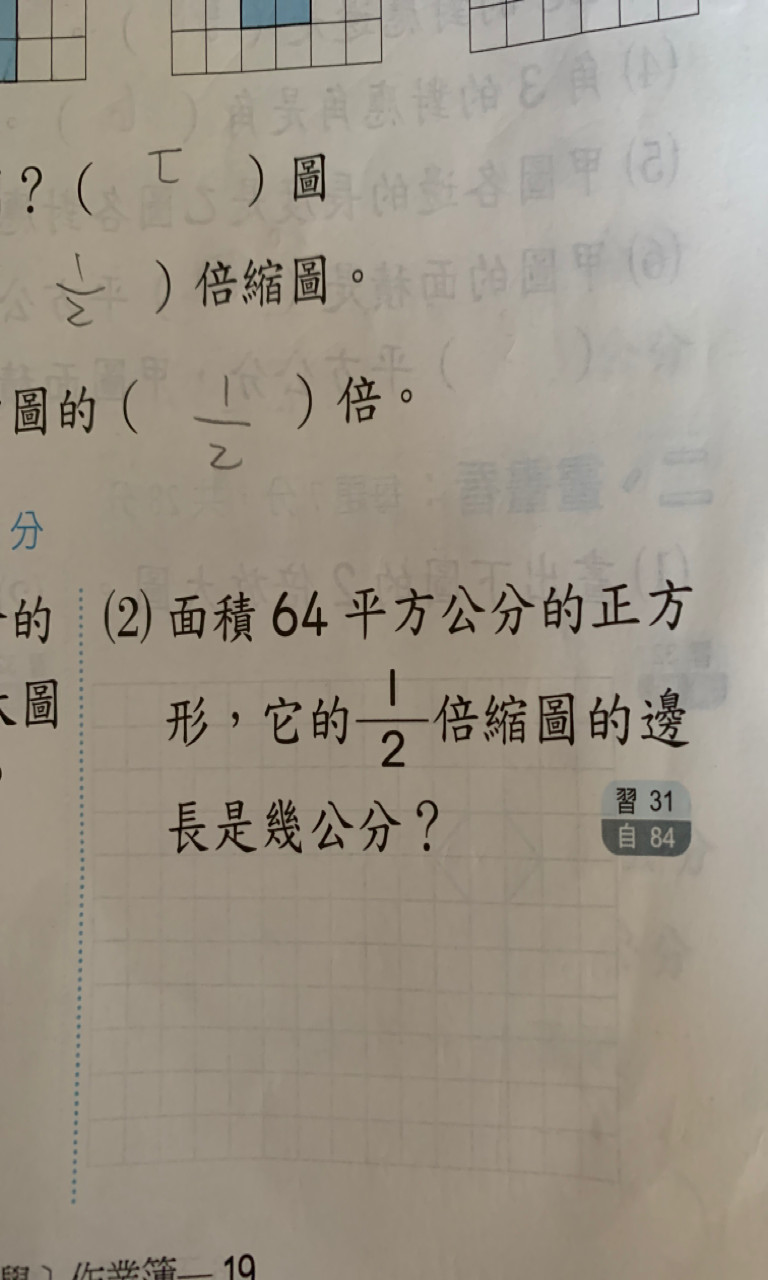 ?( 丁 )圖
1/2 )倍縮圖。
圖的( 1/2 )倍。
分
的
(2) 面積 64 平方公分的正方
圖
形，它的1/2倍縮圖的邊
長是幾公分？
習 31
自 84
作業簿—19